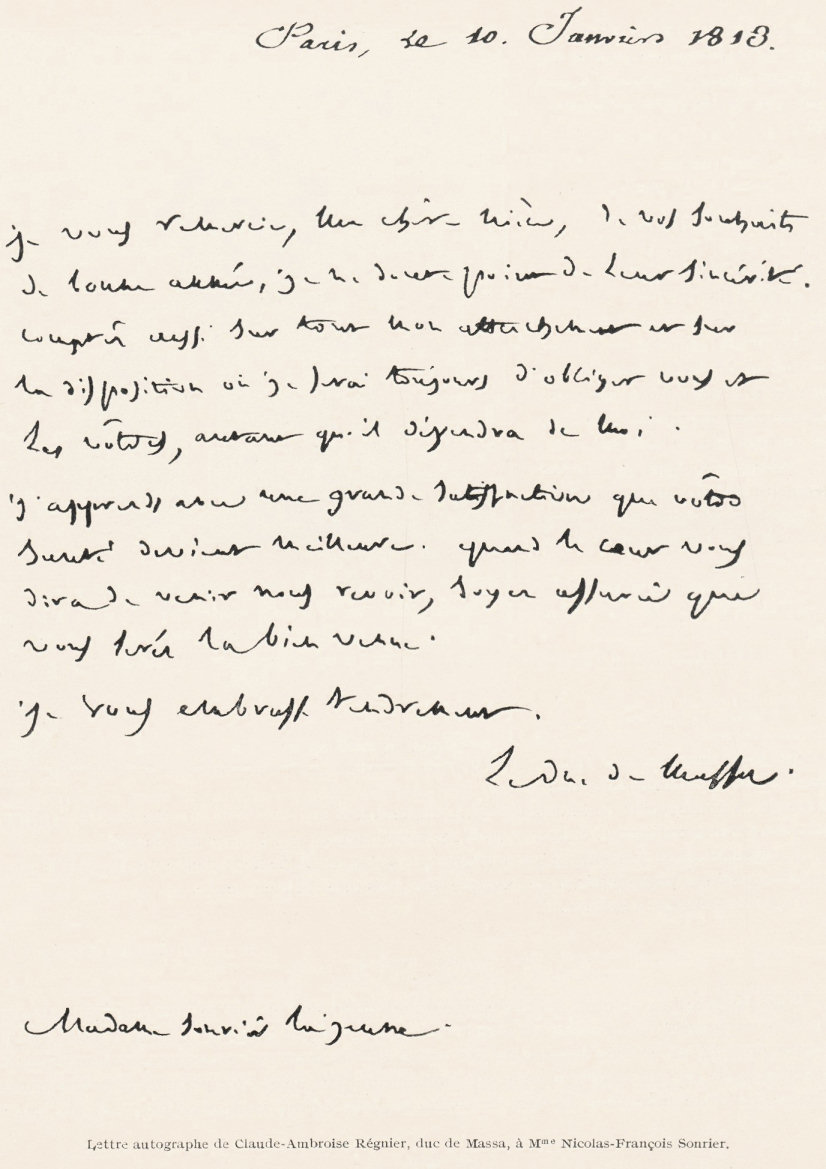 Paris, Le 10. Janvier 1813.
je vous remercie, ma chère nièce, de vos souhaits
de bonne année, je ne doute point de Leur sincérité.
comptés aussi sur tout mon attachement et sur
la disposition où je serai toujours d'obliger vous et
Les vôtres, autant qu'il dépendra de moi.
j'apprends avec une grande satisfaction que vôtre
santé devient meilleure. quand le cœur vous
dira de venir nous revoir, soyez assurée que
vous serés la bien venue.
je vous embrasse tendrement.
Le Duc de Massa.
Madame Sonrier la jeune.
Lettre autographe de Claude-Ambroise Régnier, duc de Massa, à Mme Nicolas-François Sonrier.